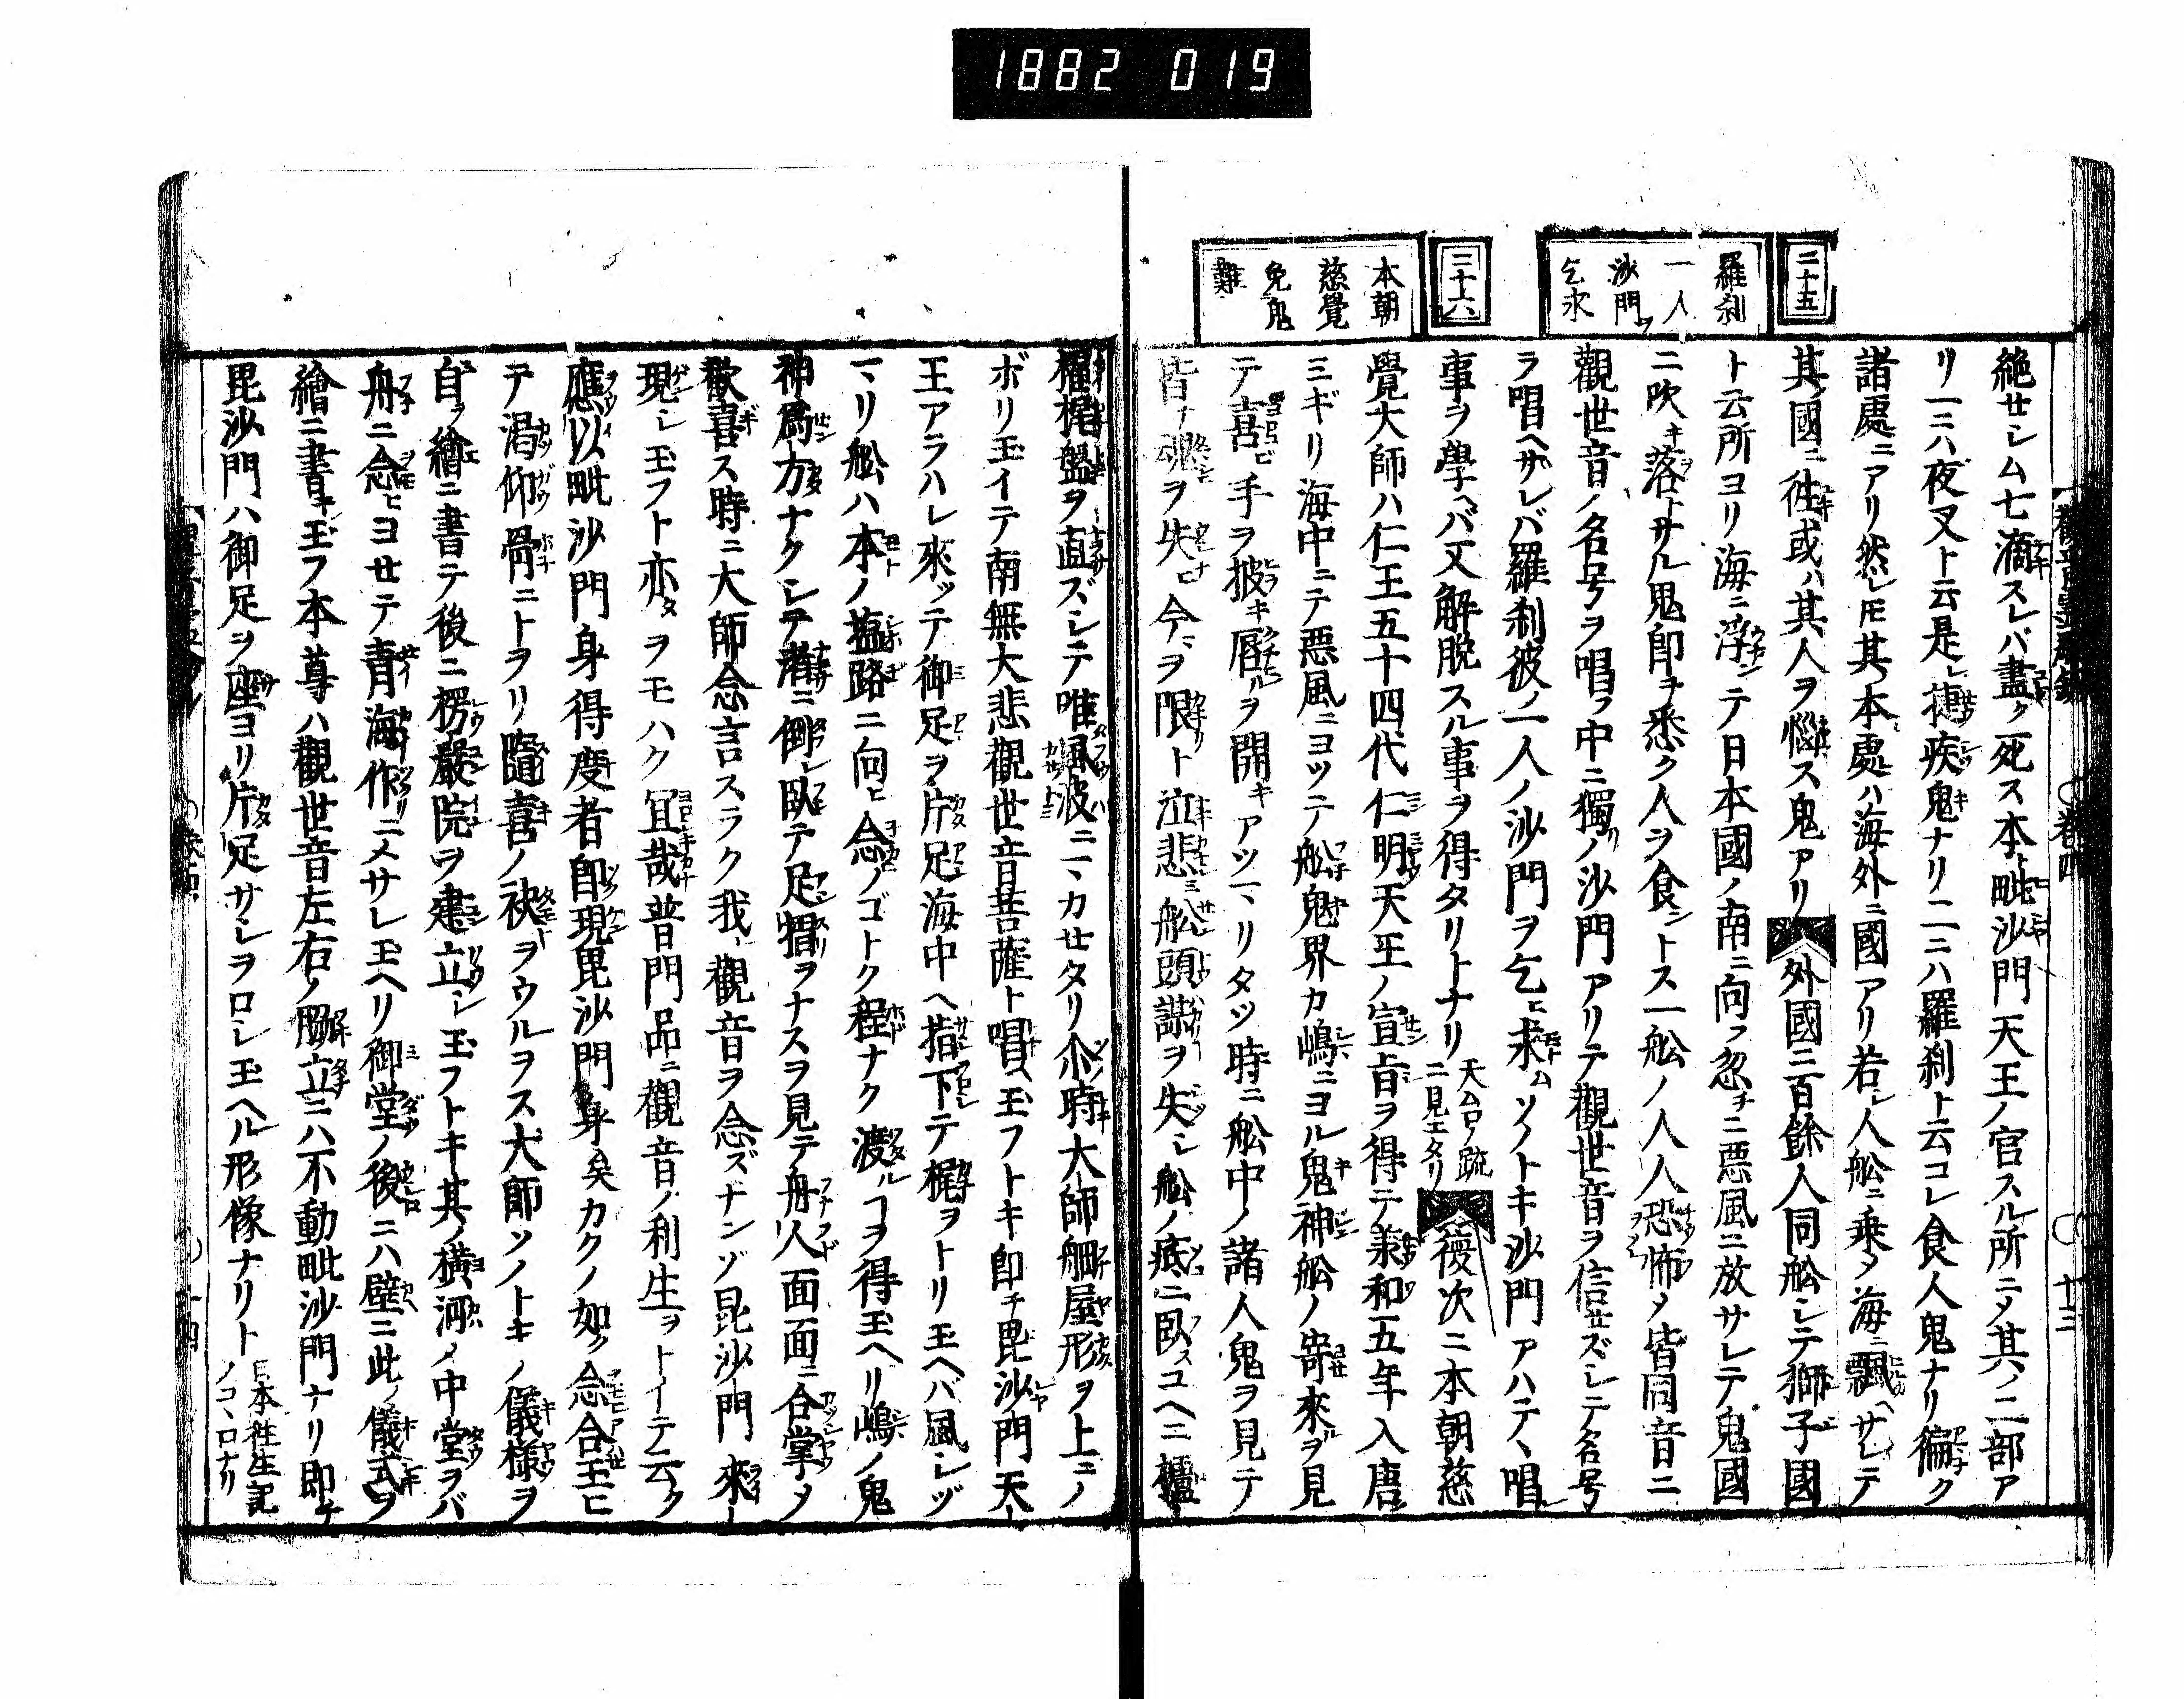 1882 019
二十五
羅刹
一人
沙門ヲ
乞求
二十六
本朝
慈覺
免鬼
難
絶セシム七滴スレバ盡ク死ス本ト毗沙門天王ノ官スル所ニ〆其ノ二部ア
リ一ニハ夜叉ト云是レ捷疾鬼ナリ二ニハ羅刹ト云コレ食人鬼ナリ徧ク
諸處ニアリ然レ𪜈其ノ本處ハ海外ニ國アリ若シ人舩ニ乗〆海ニ飄ヘサレテ
其ノ國ニ徃キ或ハ其人ヲ惱マス鬼アリ 外國ニ百餘人同舩シテ獅子國
ト云所ヨリ海ニ浮ンテ日本國ノ南ニ向フ忽チニ悪風ニ放サレテ鬼國
ニ吹キ落トサル鬼即チ悉ク人ヲ食ントス一舩ノ人人恐怖〆皆同音ニ
觀世音ノ名号ヲ唱フ中ニ獨リノ沙門アリテ觀世音ヲ信セズシテ名号
ヲ唱ヘサレバ羅刹彼ノ一人ノ沙門ヲ乞ヒ求ムソノトキ沙門アハテヽ唱ヘ
事ヲ學ヘバ又解脱スル事ヲ得タリトナリ 天台ノ疏ニ見エタリ 復次ニ本朝慈
覺大師ハ仁王五十四代仁明天王ノ宣旨ヲ得テ兼和五年入唐
ミギリ海中ニテ悪風ニヨツテ舩鬼界カ嶋ニヨル鬼神舩ノ寄來ルヲ見
テ喜ビ手ヲ披キ唇ルヲ開キアツマリタツ時ニ舩中ノ諸人鬼ヲ見テ
皆ナ魂ヲ失ヒ今ヲ限リト泣悲ミ舩頭謀ヲ失シ舩ノ底ニ臥スコヘニ櫨
櫂梶盤ヲ直ズシテ唯風波ニマカセタリ尒時大師舳屋形ヲ上ニノ
ボリ玉イテ南無大悲觀世音菩薩ト唱ヘ玉フトキ即チ毘沙門天
王アラハレ來ツテ御足ヲ片足海中ヘ指下テ梶ヲトリ玉ヘバ風シヅ
マリ舩ハ本ノ塩路ニ向ヒ念ノゴトク程ナク渡ルコヲ得玉ヘリ嶋ノ鬼
神爲ン方ナクシテ渚ニ倒レ臥テ足摺ヲナスヲ見テ舟人面面ニ合掌〆
歡喜ス時ニ大師念言スラク我レ觀音ヲ念ズナンゾ毘沙門來
現シ玉フト亦タヲモハク冝哉普門品ニ觀音ノ利生ヲトイテ云ク
應以毗沙門身得度者即現毘沙門身矣カクノ如ク念合玉ヒ
テ渇仰骨ニトヲリ隨喜ノ袂ヲウルヲス大師ソノトキノ儀様ヲ
自ラ繪ニ書テ後ニ楞嚴院ヲ建立シ玉フトキ其ノ横河ノ中堂ヲバ
舟ニ念ヒヨセテ青海作リニ〆サレ玉ヘリ御堂ノ後ニハ壁ニ此ノ儀式ヲ
繪ニ書キ玉フ本尊ハ觀世音左右ノ脇立ニハ不動毗沙門ナリ即チ
毘沙門ハ御足ヲ座ヨリ片足サシヲロシ玉ヘル形像ナリト 日本徃生記ノコヽロナリ